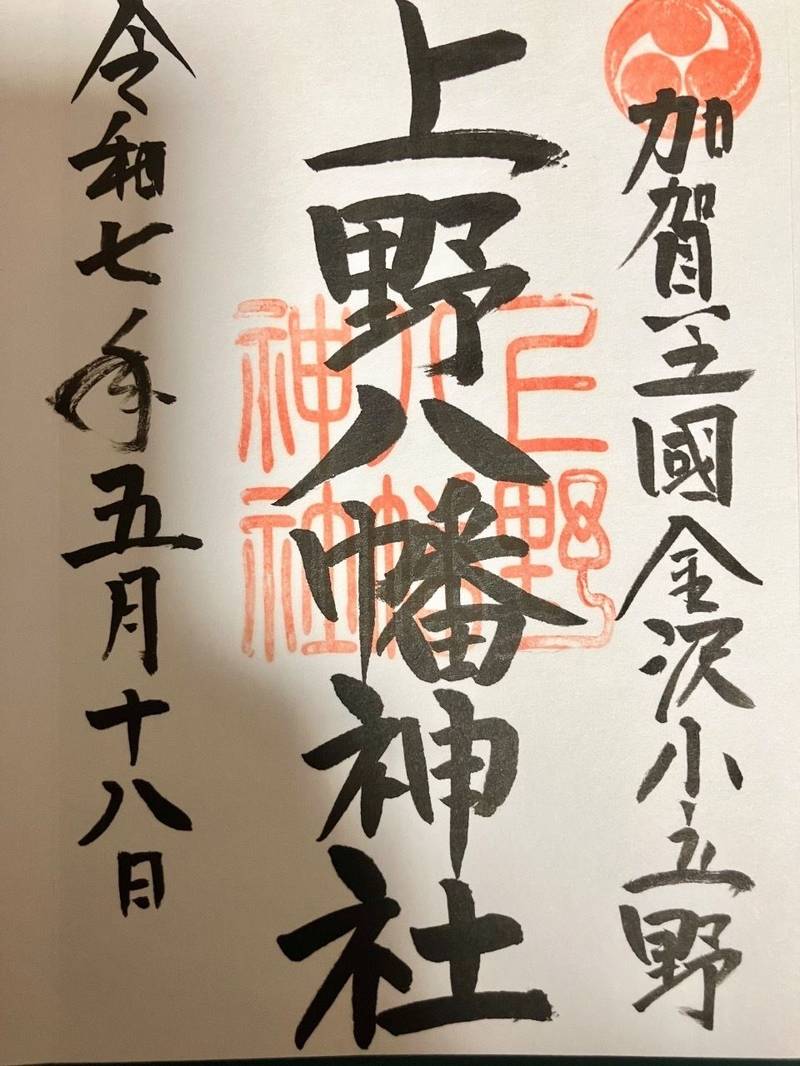 加賀王國金沢小立野
上野八幡神社
令和七年五月十八日
上野
八幡
神社